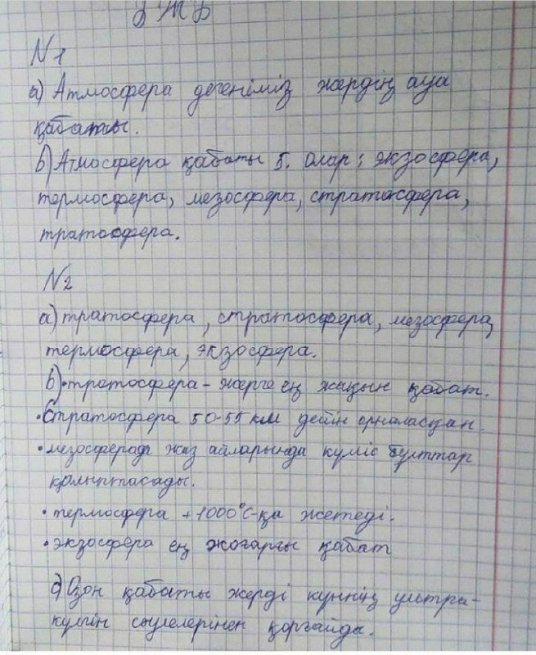 БЖБ
№1
а) Атмосфера дегеніміз жердің ауа
қабаты.
b) Атмосфера қабаты 5. Олар: экзосфера,
термосфера, мезосфера, стратосфера,
тратосфера.
№2
а) тратосфера, стратосфера, мезосфера,
термосфера, экзосфера.
b) • тратосфера - жерге ең жақын қабат.
• Стратосфера 50-55 км дейін орналасқан.
• мезосферада жаз айларында күміс бұлттар
қалыптасады.
• термосфера +1000°С-қа жетеді.
• экзосфера ең жоғарғы қабат
с) Озон қабаты жерді күннің ультра-
күлгін сәулелерінен қорғайды.